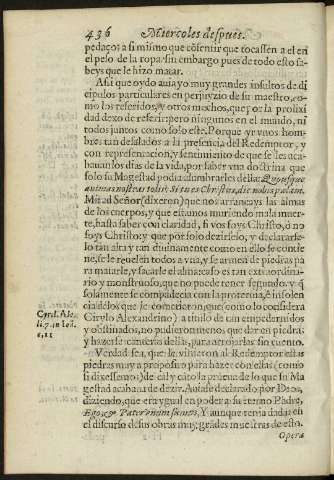 436 Miercoles despues.
pedaços a si mismo que cõsentir que tocassen a el en
el pelo de la ropa: sin embargo pues de todo esto sa-
beys que le hizo matar.
Asi que oydo auia yo muy grandes insultos de di
cipulos particulares en perjuyzio de su maestro, co-
mo los referidos, y otros muchos, que por la prolixi
dad dexo de referir: pero ningunos en el mundo, ni
todos juntos como solo este. Porque yr vnos hom-
bres tan desalados a la presencia del Redemptor, y
con representacion, y sentimiento de que se les aca-
bauan los dias de la vida, por saber vna doctrina que
solo su Magestad podia alumbrarles della: Quousque
animas nostras tollis? Si tu es Christus, dic nobis palam.
Mirad Señor (dixeron) que nos arrancays las almas
de los cuerpos, y que estamos muriendo mala muer-
te, hasta saber con claridad, si vos soys Christo, ò no
soys Christo: y que por solo dezirselo, y declararse-
lo tan alta y tan diuinamente como en ello se contie
ne, se le reuelen todos a vna, y se armen de piedras pa
ra matarle, y sacarle el alma: caso es tan extraordina-
rio y monstruoso, que no puede tener segundo: y q̃
solamente se compadecia con la proteruia, è insolen
cia de los que le cometieron, que (como lo considera
Cirylo Alexandrino) a titulo de tan empedernidos
y obstinados, no pudieron menos que dar en piedras
y hazerse canteras dellas, para arrojarlas sin cuento.
Cyril. Ale.
li. 7. in Ioã.
Verdad sea, que le vinieron al Redemptor estas
piedras muy a proposito para hazer con estas (como
si dixessemos) de cal y canto la prueua de lo que su Ma
gestad acababa de dezir. Auiase declarado por Dios,
diziendo, que era ygual en poder a su eterno Padre,
Ego, & Pater vnum sumus. Y aunque tenia dadas en
el discurso de sus obras muy grades muestras de esto.
Opera